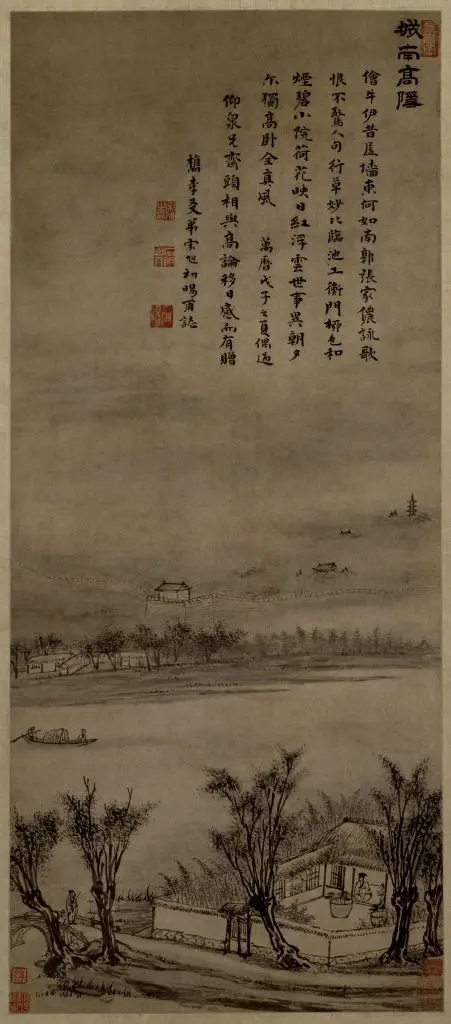 城南高隱
儈牛伊昔居墻東何如南郭張家儂詠歌
恨不驚人句行草妙比臨池工衡門柳色和
煙碧小院荷花映日紅浮雲世事異朝夕
尒獨高臥全真風 萬曆戊子之夏偶過
仰泉兄齋頭相與高論移日感而有贈
檇李友弟宋旭初暘甫誌